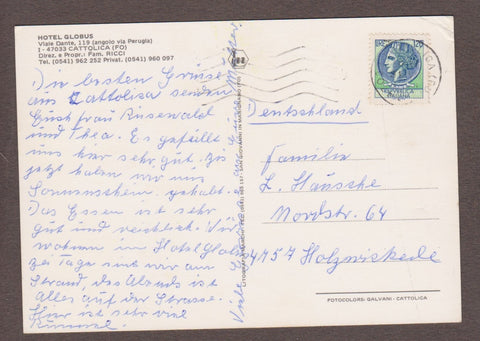 HOTEL GLOBUS
Viale Dante, 119 (angolo via Perugia)
I - 47033 CATTOLICA (FO)
Direz. e Propr.: Fam. RICCI
Tel. (0541) 962 252 Privat. (0541) 960 097
Die besten Grüsse
aus Cattolica senden
Euch Frau Rusewald
und Thea. Es gefällt
uns hier sehr gut. Bis
jetzt haben wir nur
Sonnenschein gehabt.
Das Essen ist sehr
gut und reichlich. Wir
wohnen im Hotel Globus
Bei Tage sind wir am
Strand, des Abends ist
alles auf der Strasse.
Hier ist sehr viel
Rummel.
Viele
Deutschland
Familie
L. Häusche
Nordstr. 64
4754 Holzwickede
FOTOCOLORS: GALVANI - CATTOLICA